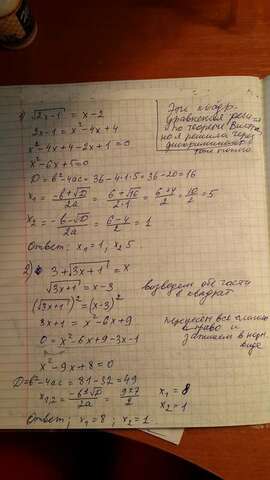 1) √2x-1 = x-2
2x-1 = x²-4x+4
x²-4x+4-2x+1=0
x²-6x+5=0
D=b²-4ac=36-4·1·5=36-20=16
x₁ = -b+√D/2a = 6+√16/2·1 = 6+4/2 = 10/2 = 5
x₂ = -b-√D/2a = 6-4/2 = 1
Ответ: x₁=1, x₂ 5
Эти квадр.
уравнения
по теореме Виета
но я решила через
дискриминант
2) 3+√3x+1 = x
√3x+1 = x-3
(√3x+1)² = (x-3)²
3x+1 = x²-6x+9
0 = x²-6x+9-3x-1
x²-9x+8=0
D=b²-4ac=81-32=49
x₁,₂ = -b±√D/2a = 9±7/2
x₁ = 8
x₂ = 1
Ответ: x₁=8; x₂=1
возведем об. части
в квадрат
перенесем все
вправо и
запишем в
виде